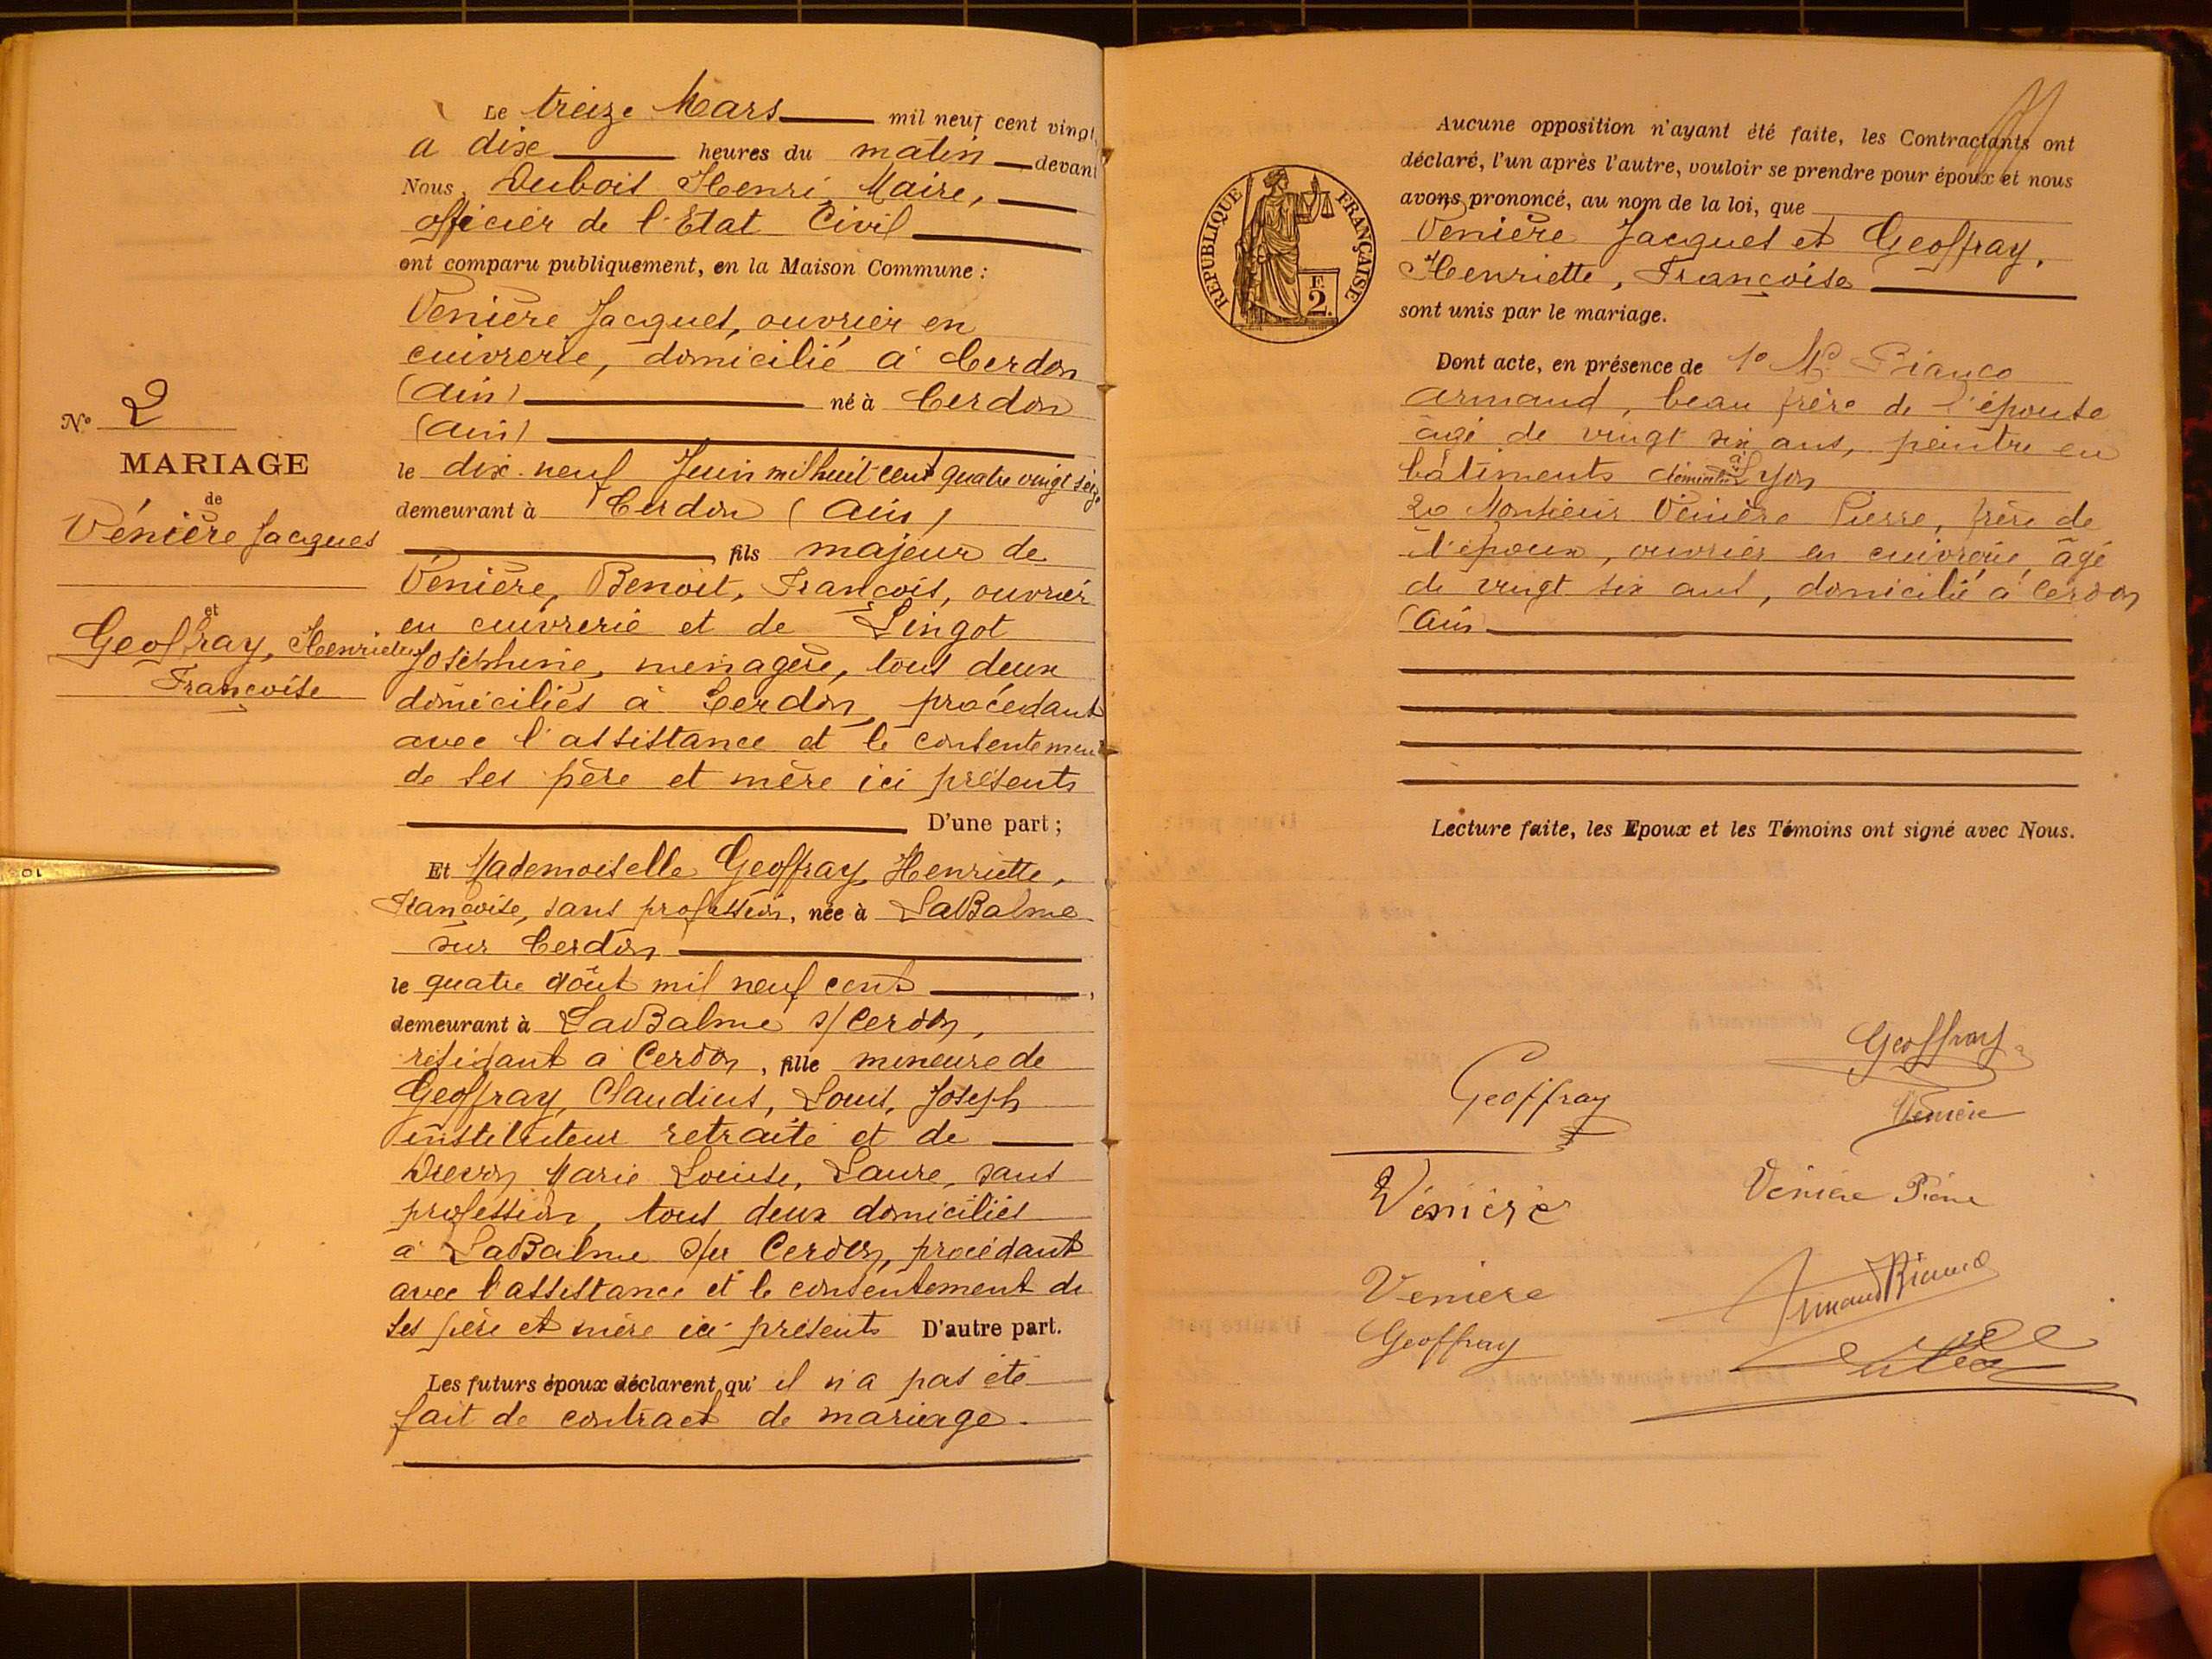 Le treize Mars mil neuf cent vingt
a dix heures du matin devant
Nous, Dubois Henri, Maire,
officier de l'Etat Civil
ont comparu publiquement, en la Maison Commune :
Vénière Jacques, ouvrier en
cuivrerie, domicilié à Cerdon
(Ain) né à Cerdon
(Ain)
le dix-neuf Juin mil huit cent quatre vingt seize
demeurant à Cerdon (Ain)
fils majeur de
Vénière, Benoit, François, ouvrier
en cuivrerie et de Lingot
Joséphine, ménagère, tous deux
domiciliés à Cerdon, procédant
avec l'assistance et le consentement
de ses père et mère ici présents
D'une part ;
Nº 2
MARIAGE
de
Vénière Jacques
et
Geoffray, Henriette
Françoise
Et Mademoiselle Geoffray, Henriette,
Françoise, sans profession, née à LaBalme
sur Cerdon
le quatre août mil neuf cent
demeurant à LaBalme s/ Cerdon,
résidant à Cerdon, fille mineure de
Geoffray, Claudius, Louis, Joseph
instituteur retraité et de
Marie Louise, Laure, sans
profession, tous deux domiciliés
à LaBalme sur Cerdon, procédant
avec l'assistance et le consentement de
ses père et mère ici présents D'autre part.
Les futurs époux déclarent qu'il n'a pas été
fait de contract de mariage.
Aucune opposition n'ayant été faite, les Contractants ont
déclaré, l'un après l'autre, vouloir se prendre pour époux et nous
avons prononcé, au nom de la loi, que
Vénière Jacques et Geoffray,
Henriette, Françoise
sont unis par le mariage.
RÉPUBLIQUE FRANÇAISE
F.
2.
Dont acte, en présence de 1º M. Bianco
Armand, beau frère de l'épouse
âgé de vingt six ans, peintre en
bâtiments à Lyon
2º Monsieur Vénière Pierre, frère de
l'époux, ouvrier en cuivrerie, âgé
de vingt six ans, domicilié à Cerdon
(Ain)
Lecture faite, les Epoux et les Témoins ont signé avec Nous.
Geoffray
Geoffray
Vénière
Vénière
Vénière Pierre
Veniere
Armand Bianco
Geoffray